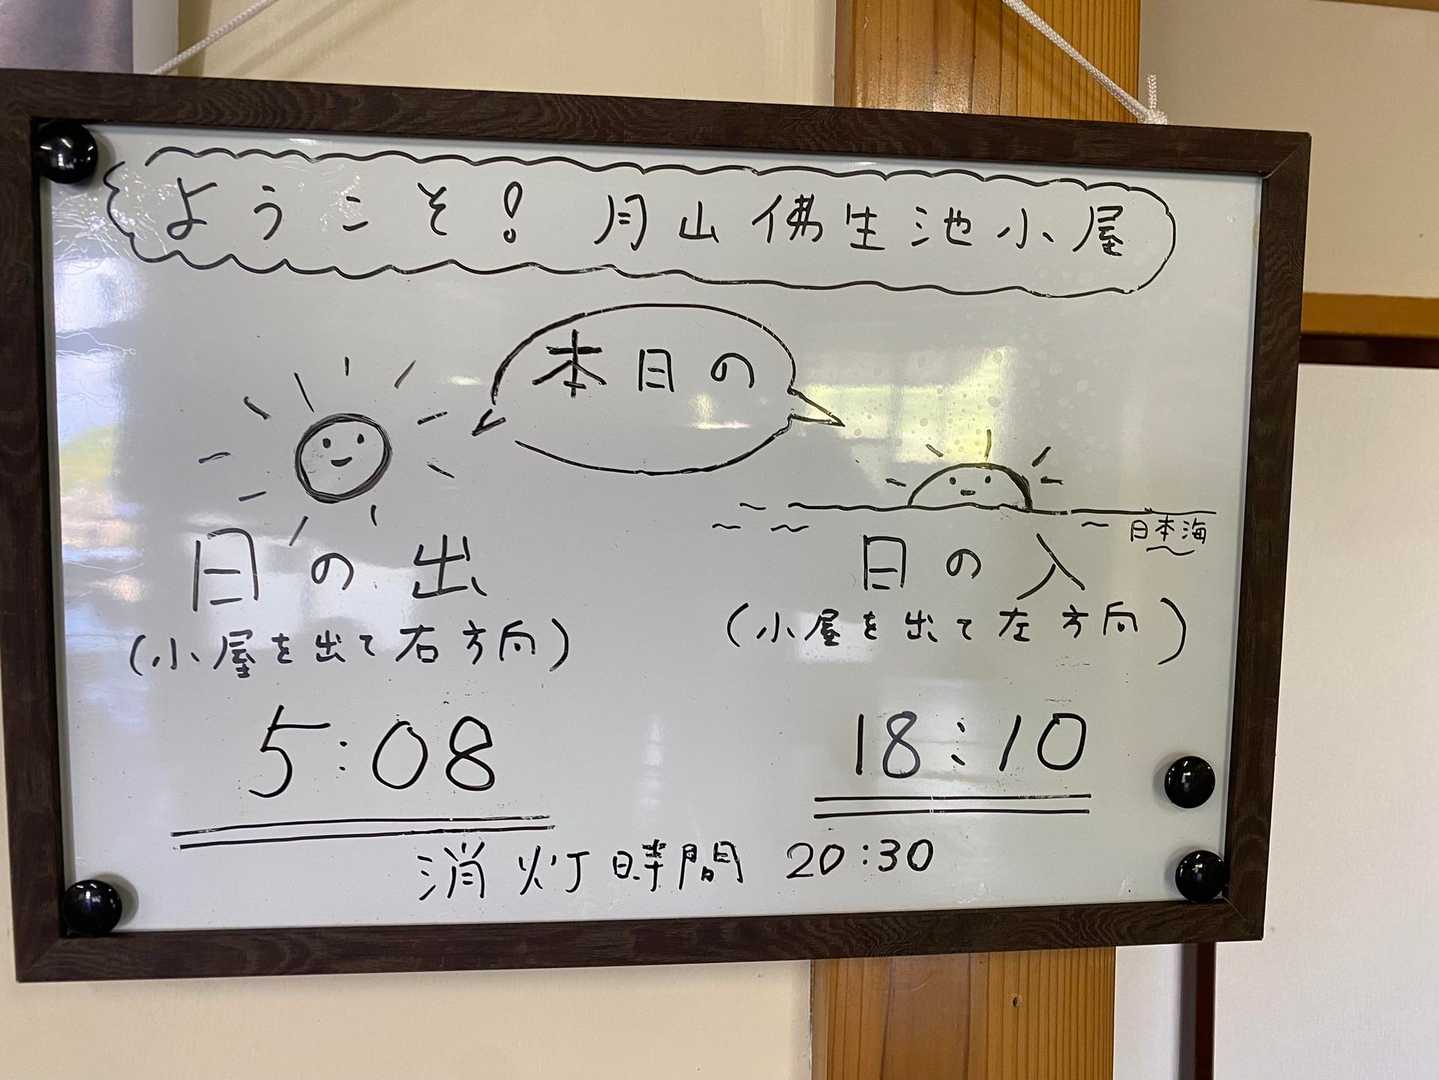 ようこそ! 月山佛生池小屋
本日の
日の出
(小屋を出て右方向)
5:08
日本海
日の入
(小屋を出て左方向)
18:10
消灯時間 20:30